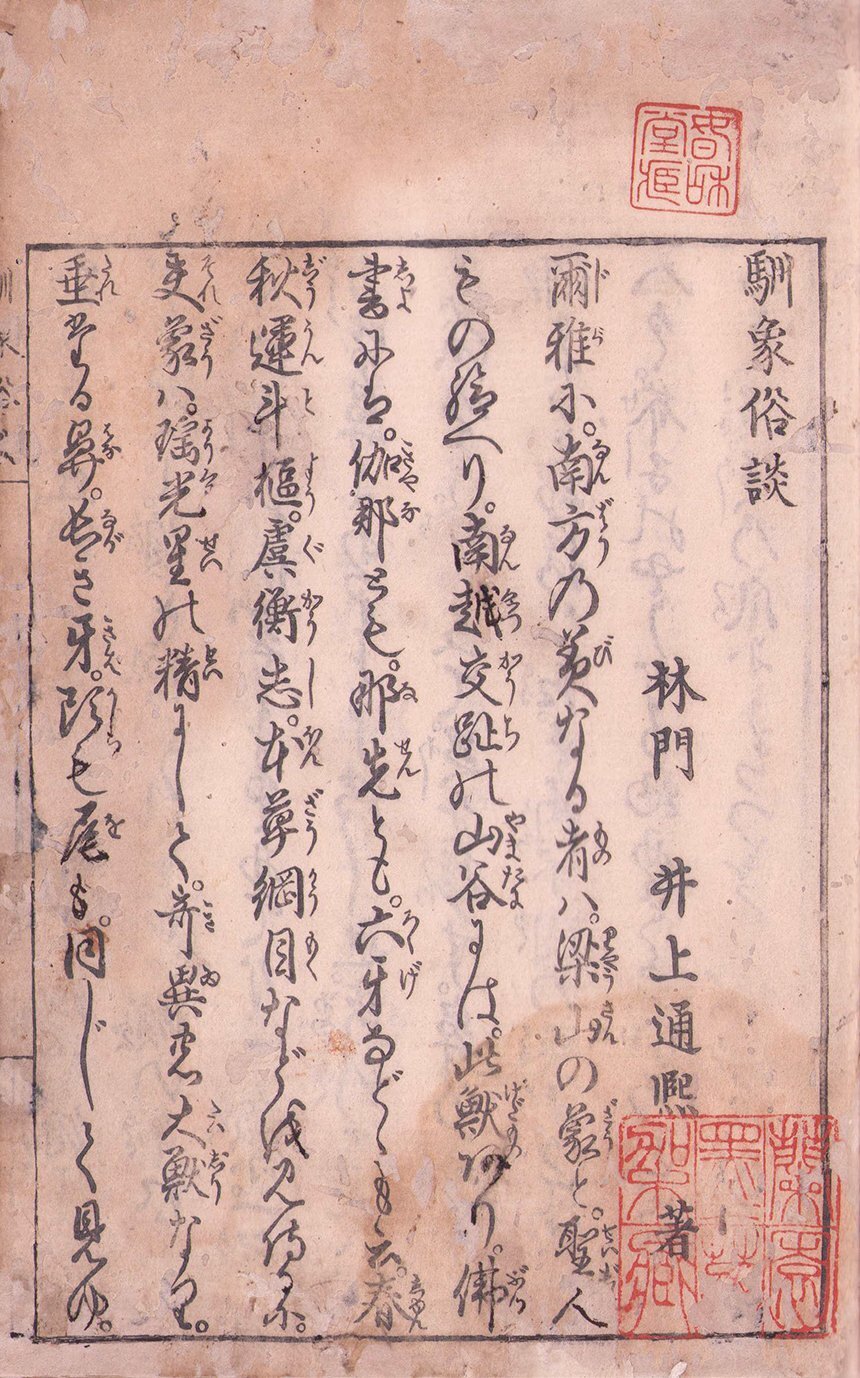 馴象俗談
林門 井上通熈 著
爾雅に。南方の美なる者ハ。梁山の象と。聖人
もの給へり。南越交趾の山谷には。此獣あり。佛
書にハ。伽那とも。那先とも。六牙などゝも云。春
秋運斗樞。虞衡志。本草綱目などを見侍るに。
夫象ハ。瑶光星の精にして。奇異の大獣なり。
垂たる鼻。長き牙。頭も尾も。同じして見ゆ。